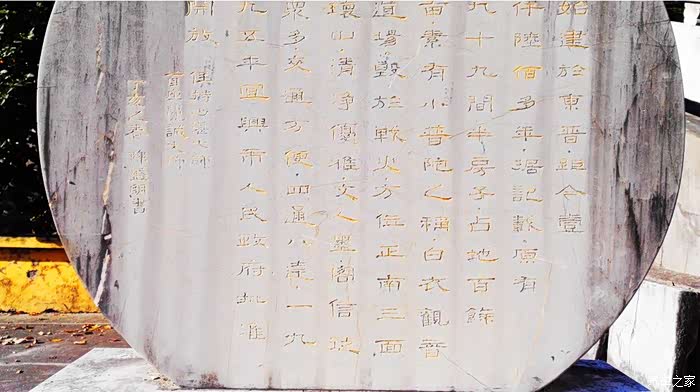 始建於東晉距今壹
仟陸佰多年據記載原有
九十九間半房子占地百餘
亩素有小普陀之稱白衣觀音
道場毀於戰火方位正南三面
環山清净優雅文人墨客信徒
眾多交通方便四通八達一九
九五年宜興市人民政府批准
開放
大師
丁亥之春 書
之家